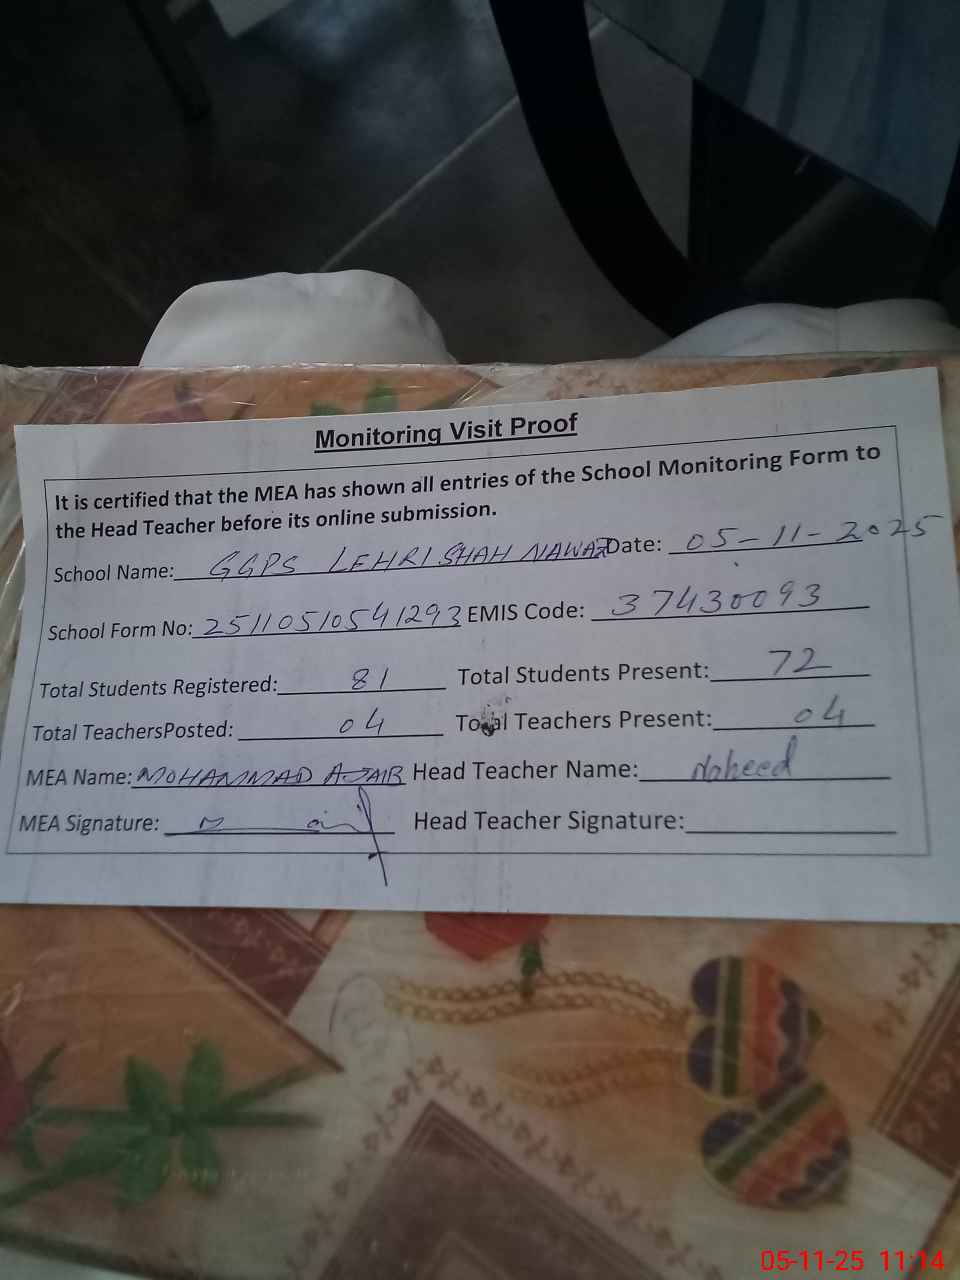 Monitoring Visit Proof
It is certified that the MEA has shown all entries of the School Monitoring Form to
the Head Teacher before its online submission.
School Name: GGPS LEHRI SHAH NAWAZ Date: 05-11-2025
School Form No: 25110510541293 EMIS Code: 37430093
Total Students Registered: 81 Total Students Present: 72
Total TeachersPosted: 04 Total Teachers Present: 04
MEA Name: MOHAMMAD Head Teacher Name: Naheed
MEA Signature: Head Teacher Signature:
05-11-25 11:14